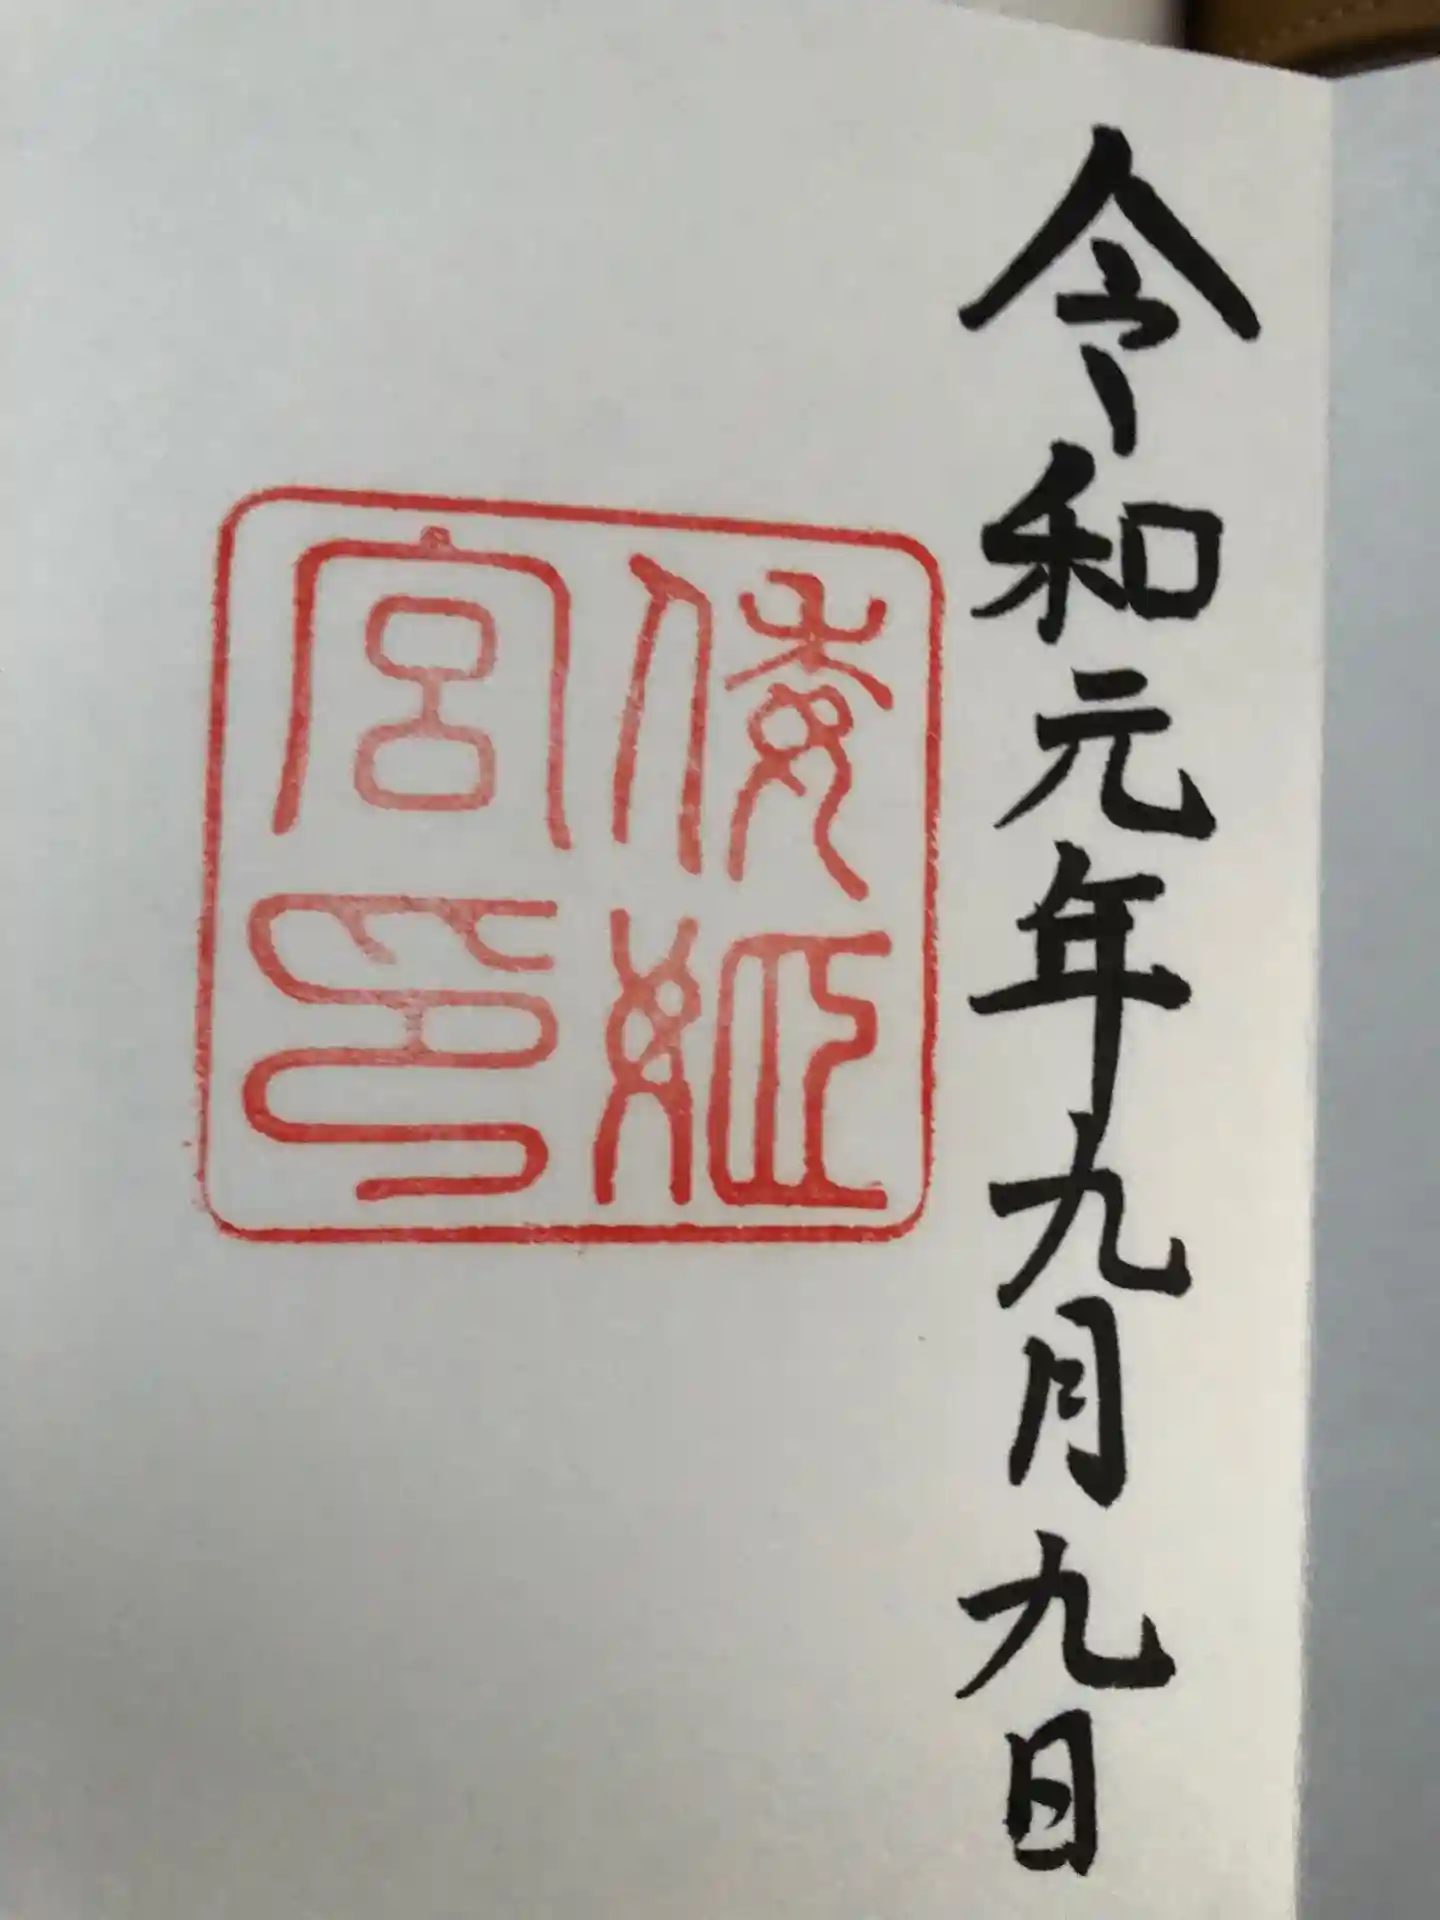 令和元年九月九日
倭姫
宮印